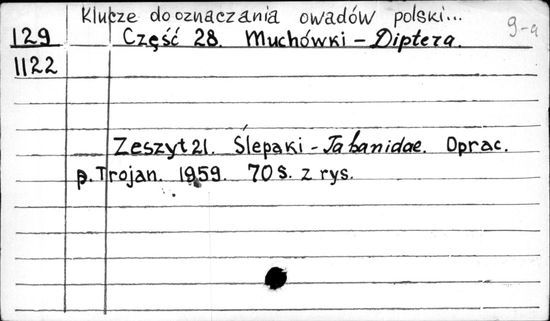 Klucze do oznaczania owadów polski...
9-a
129 Część 28. Muchówki - Diptera.
1122
Zeszyt 21. Ślepaki - Tabanidae. Oprac.
p. Trojan. 1959. 70 s. z rys.